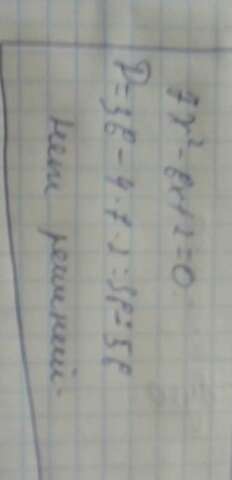 7x² - 6x + 2 = 0
D = 36 - 4 · 7 · 2 =
нет решений.